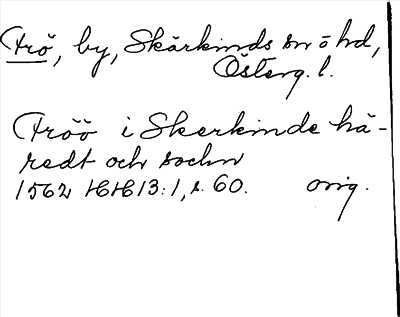 Frö, by, Skärkinds sn o hd,
Österg. l.
Fröö i Skerkinde hä-
redt och sochn
1562 HH 13:1, s. 60. orig.